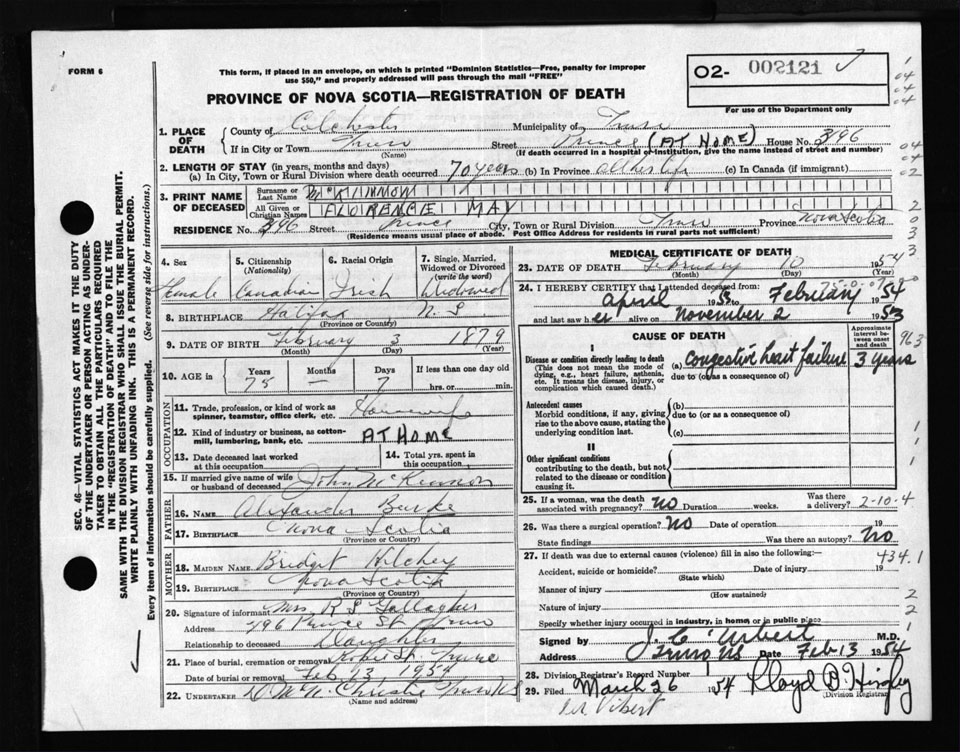 FORM 6
This form, if placed in an envelope, on which is printed "Dominion Statistics—Free, penalty for improper
use $50," and properly addressed will pass through the mail "FREE"
O2- 002121
For use of the Department only
PROVINCE OF NOVA SCOTIA—REGISTRATION OF DEATH
1. PLACE OF DEATH County of Colchester Municipality of Truro
If in City or Town Truro Street Prince (AT HOME) House No. 396
(Name) (If death occurred in a hospital or institution, give the name instead of street and number)
2. LENGTH OF STAY (in years, months and days)
(a) In City, Town or Rural Division where death occurred 70 years (b) In Province all her life (c) In Canada (if immigrant)
3. PRINT NAME OF DECEASED Surname or Last Name McKINNON
All Given or Christian Names FLORENCE MAY
RESIDENCE No. 396 Street Prince City, Town or Rural Division Truro Province Nova Scotia
(Residence means usual place of abode. Post Office Address for residents in rural parts not sufficient)
4. Sex 5. Citizenship (Nationality) 6. Racial Origin 7. Single, Married, Widowed or Divorced (write the word)
Female Canadian Irish Widowed
8. BIRTHPLACE Halifax N.S.
(Province or Country)
9. DATE OF BIRTH February 3 1879
(Month) (Day) (Year)
10. AGE in Years Months Days If less than one day old
75 — 7 hrs. or min.
OCCUPATION
11. Trade, profession, or kind of work as spinner, teamster, office clerk, etc. Housewife
12. Kind of industry or business, as cotton-mill, lumbering, bank, etc. AT HOME
13. Date deceased last worked at this occupation 14. Total yrs. spent in this occupation
15. If married give name of wife or husband of deceased John McKinnon
FATHER
16. Name Alexander Burke
17. BIRTHPLACE Nova Scotia
(Province or Country)
MOTHER
18. MAIDEN NAME Bridget
19. BIRTHPLACE Nova Scotia
(Province or Country)
20. Signature of informant Mrs. R S Gallagher
Address 396 Prince St Truro
Relationship to deceased Daughter
21. Place of burial, cremation or removal St. Truro
Date of burial or removal Feb 13 1954
22. UNDERTAKER Christie Truro NS
(Name and address)
MEDICAL CERTIFICATE OF DEATH
23. DATE OF DEATH February 10 1954
(Month) (Day) (Year)
24. I HEREBY CERTIFY that I attended deceased from:
April 1953 to February 1954
and last saw her alive on November 2 1953
CAUSE OF DEATH
Approximate interval between onset and death
I
Disease or condition directly leading to death (a) Congestive heart failure 3 years
(This does not mean the mode of dying, e.g., heart failure, asthenia, etc. It means the disease, injury, or complication which caused death.)
due to (or as a consequence of)
Antecedent causes
Morbid conditions, if any, giving rise to the above cause, stating the underlying condition last.
(b)
due to (or as a consequence of)
(c)
II
Other significant conditions
contributing to the death, but not related to the disease or condition causing it.
25. If a woman, was the death associated with pregnancy? No Duration weeks. Was there a delivery? 2-10-4
26. Was there a surgical operation? No Date of operation 19
State findings Was there an autopsy? No
27. If death was due to external causes (violence) fill in also the following:—
434.1
Accident, suicide or homicide? Date of injury 19
(State which)
Manner of injury
(How sustained)
Nature of injury
Specify whether injury occurred in industry, in home, or in public place
Signed by M.D.
Address Truro NS Date Feb 13 1954
28. Division Registrar's Record Number
29. Filed March 26 1954 Lloyd
Division Registrar
SEC. 46—VITAL STATISTICS ACT MAKES IT THE DUTY
OF THE UNDERTAKER OR PERSON ACTING AS UNDER-
TAKER TO OBTAIN ALL THE PARTICULARS REQUIRED
IN THE "REGISTRATION OF DEATH" AND TO FILE THE
SAME WITH THE DIVISION REGISTRAR WHO SHALL ISSUE THE BURIAL PERMIT.
WRITE PLAINLY WITH UNFADING INK. THIS IS A PERMANENT RECORD.
Every item of information should be carefully supplied. (See reverse side for instructions.)